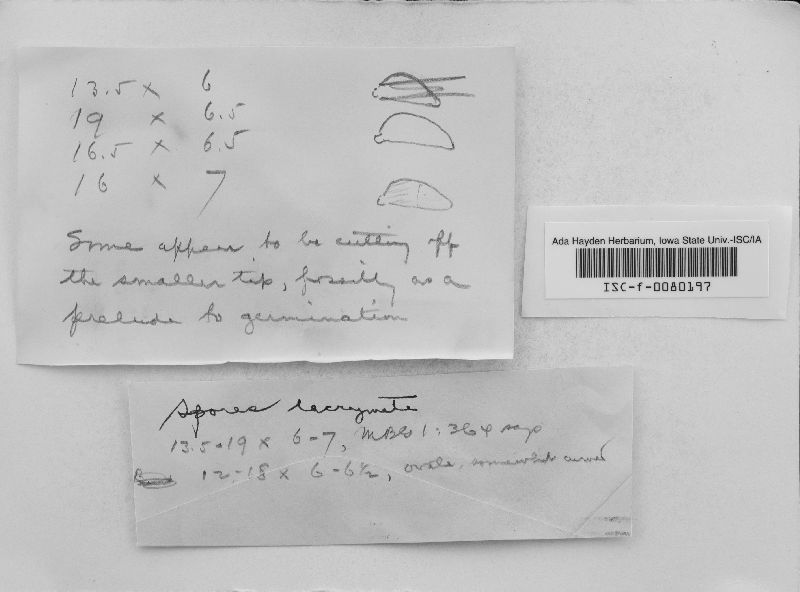 13.5 x 6
19 x 6.5
16.5 x 6.5
16 x 7
Some appear to be cutting off
the smaller tip, possibly as a
prelude to germination
Ada Hayden Herbarium, Iowa State Univ.-ISC/IA
ISC-f-0080197
Spores lacrymate
13.5-19 x 6-7, 1: 364 says
12-18 x 6-6½, ovate, somewhat curved